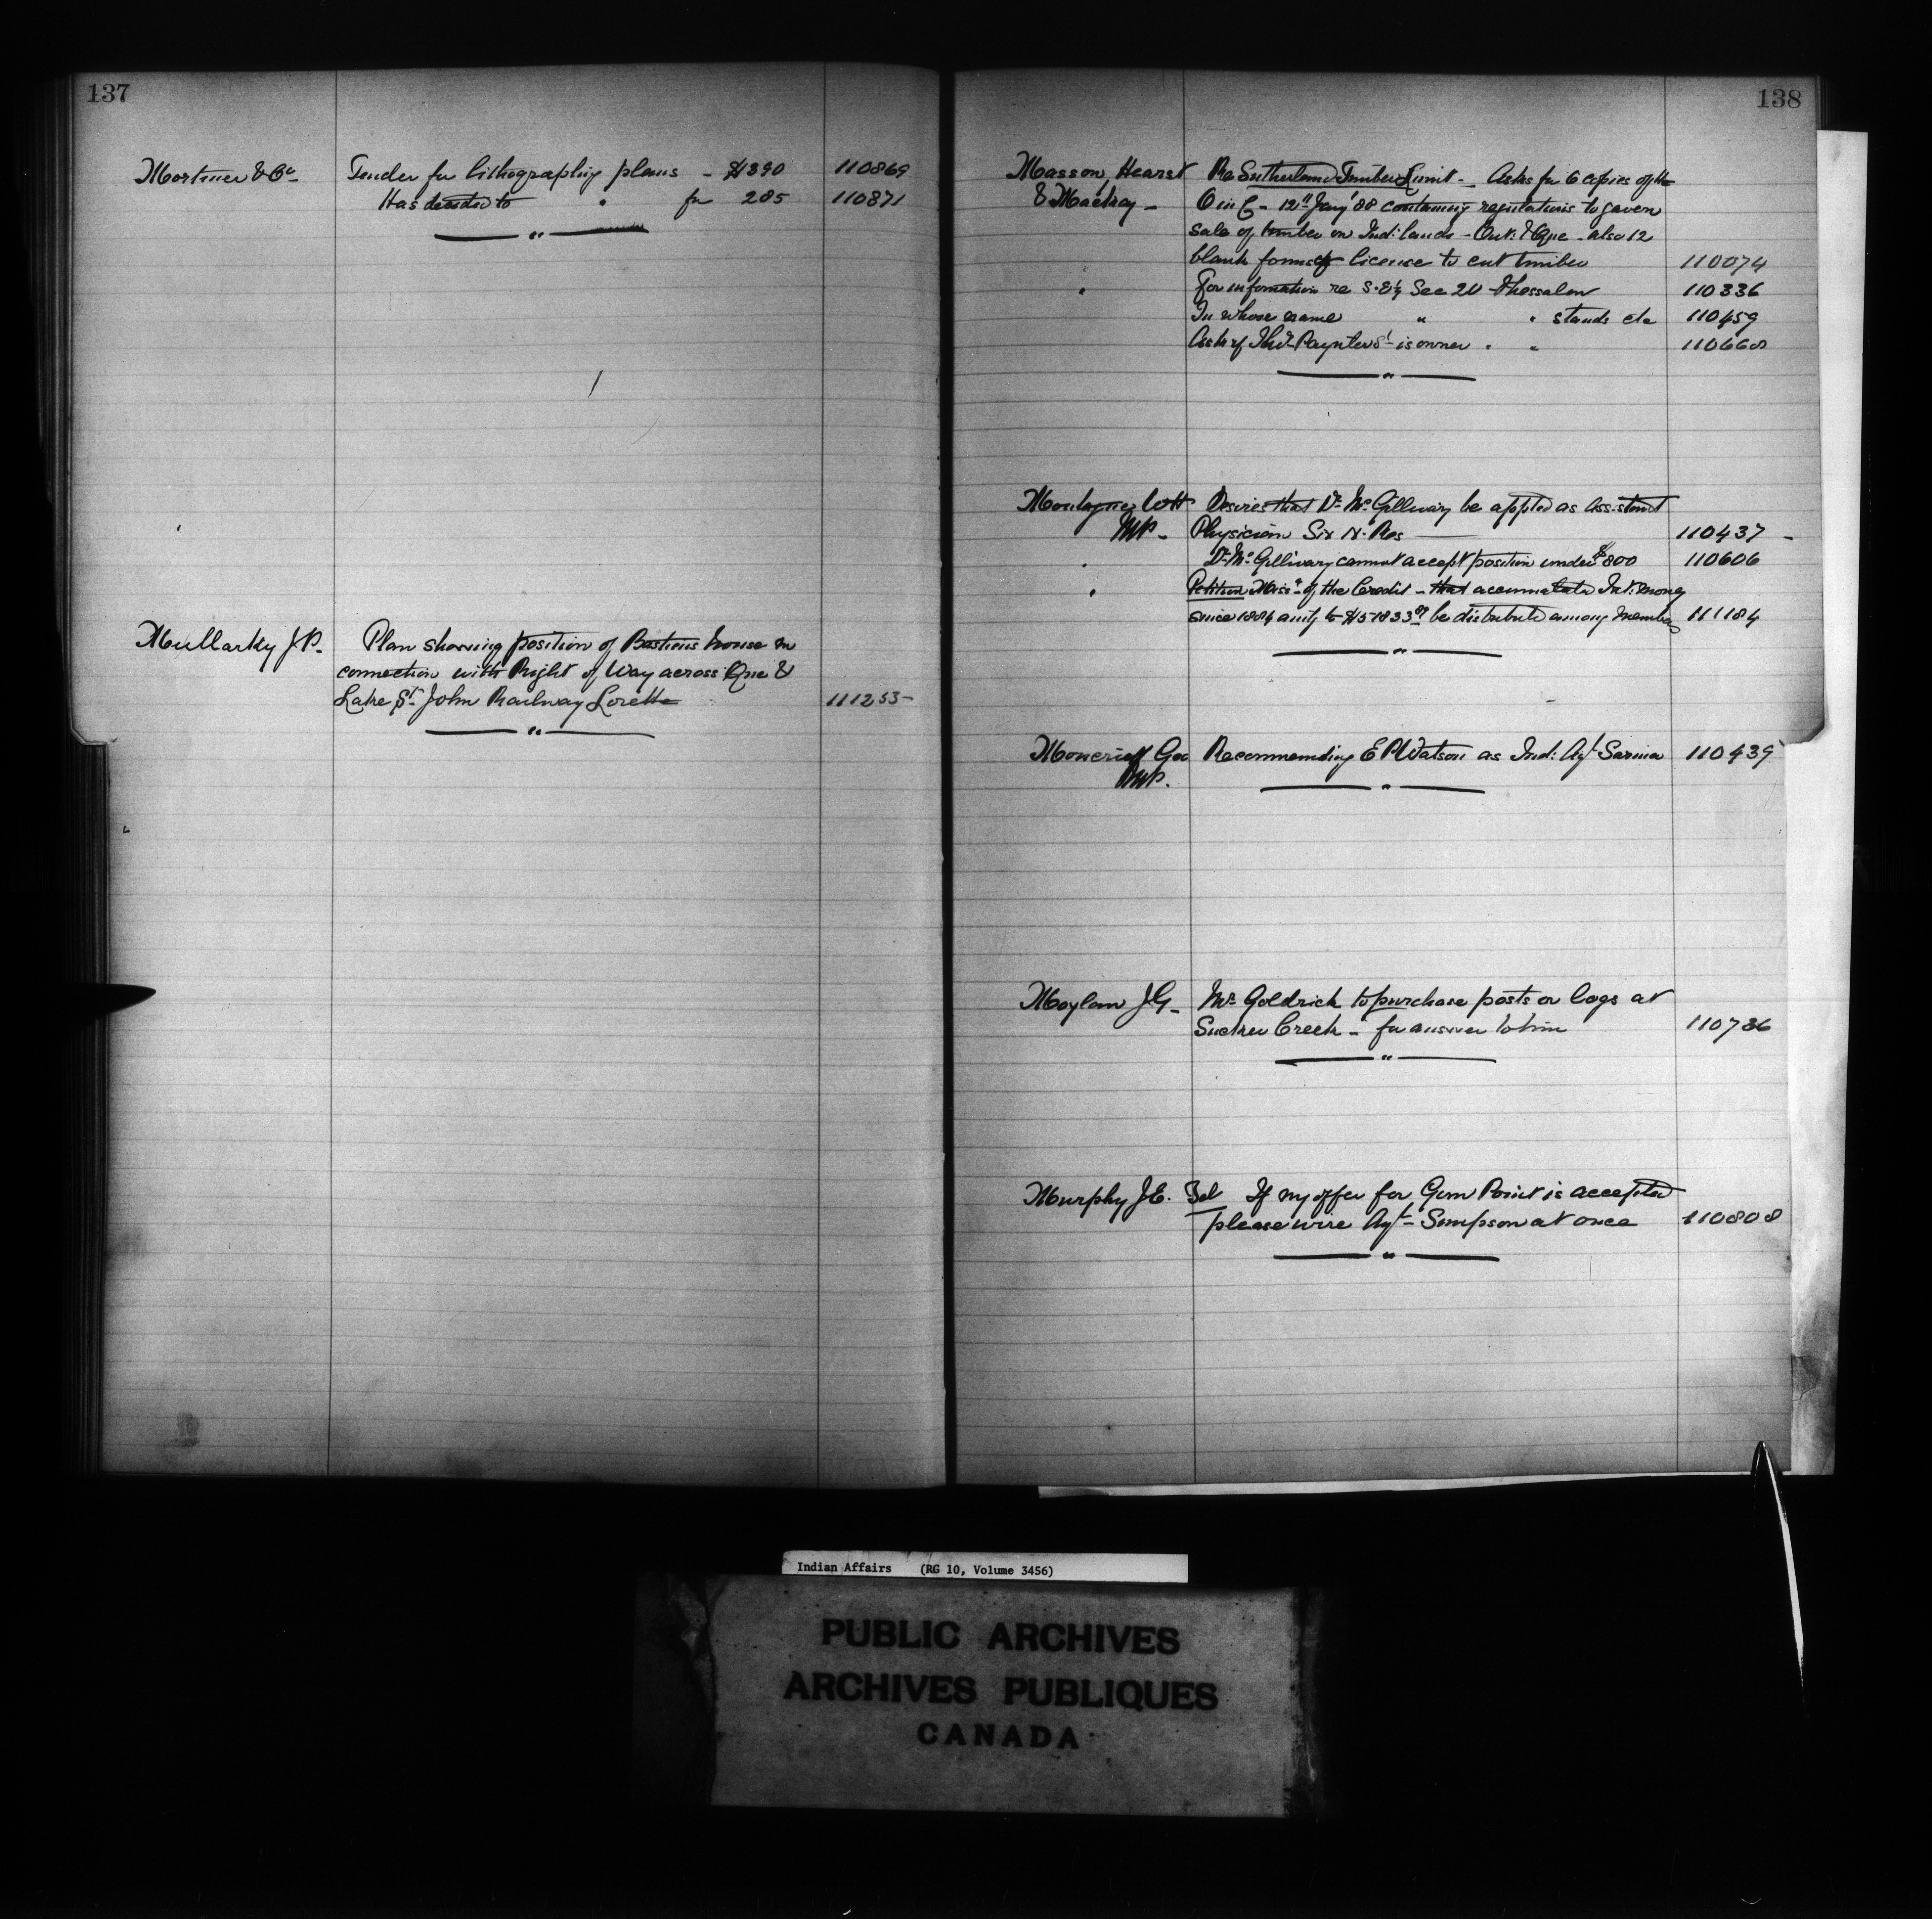 137
Mortimer & Co Tender for lithographing plans - $390 110869
Has decided to " for 285 110871
Mullarky J.P. Plan showing position of Bastiens house in
connection with Right of Way across Que &
Lake St. John Railway Lorette 111255
138
Masson, Hearst Re Sutherland Timber Limit - Asks for 6 copies of the
& Mackay - O in C - 12th Jany '88 containing regulations to govern
sale of timber on Ind: lands - Ont: & Que - also 12
blank forms of license to cut timber 110074
" For information re S.E¼ Sec 20 Thessalon 110336
In whose name " " stands etc 110459
Asks if Thos. Paynter Sr is owner " " 110660
Montague W H Desires that Dr. McGillivary be appted as Assistant
MP. Physician Six N. Res 110437
" Dr. McGillivary cannot accept position under $800 110606
" Petition Miss.s of the Credit - that accumulated Int: money
since 1884 amtg to be distributed among members 111184
Moncrieff Geo Recommending E P Watson as Ind: Agt Sarnia 110439
MP.
Moylan J.G. Mr. Goldrick to purchase posts or logs at
Sucker Creek - for answer to him 110786
Murphy J.E. Tel If my offer for Gem Point is accepted
please wire Agt - Simpson at once 110808
Indian Affairs (RG 10, Volume 3456)
PUBLIC ARCHIVES
ARCHIVES PUBLIQUES
CANADA